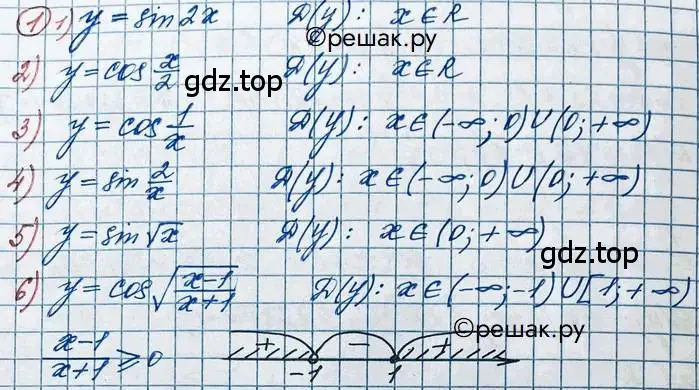 1 1) y = sin 2x D(y): x ∈ R
©решак.ру
2) y = cos x/2 D(y): x ∈ R
gdz.top
3) y = cos 1/x D(y): x ∈ (-∞; 0) ∪ (0; +∞)
4) y = sin 2/x D(y): x ∈ (-∞; 0) ∪ (0; +∞)
5) y = sin √x D(y): x ∈ (0; +∞)
gdz.top
6) y = cos √((x-1)/(x+1)) D(y): x ∈ (-∞; -1) ∪ [1; +∞)
©решак.ру
(x-1)/(x+1) ≥ 0 + - +
-1 1